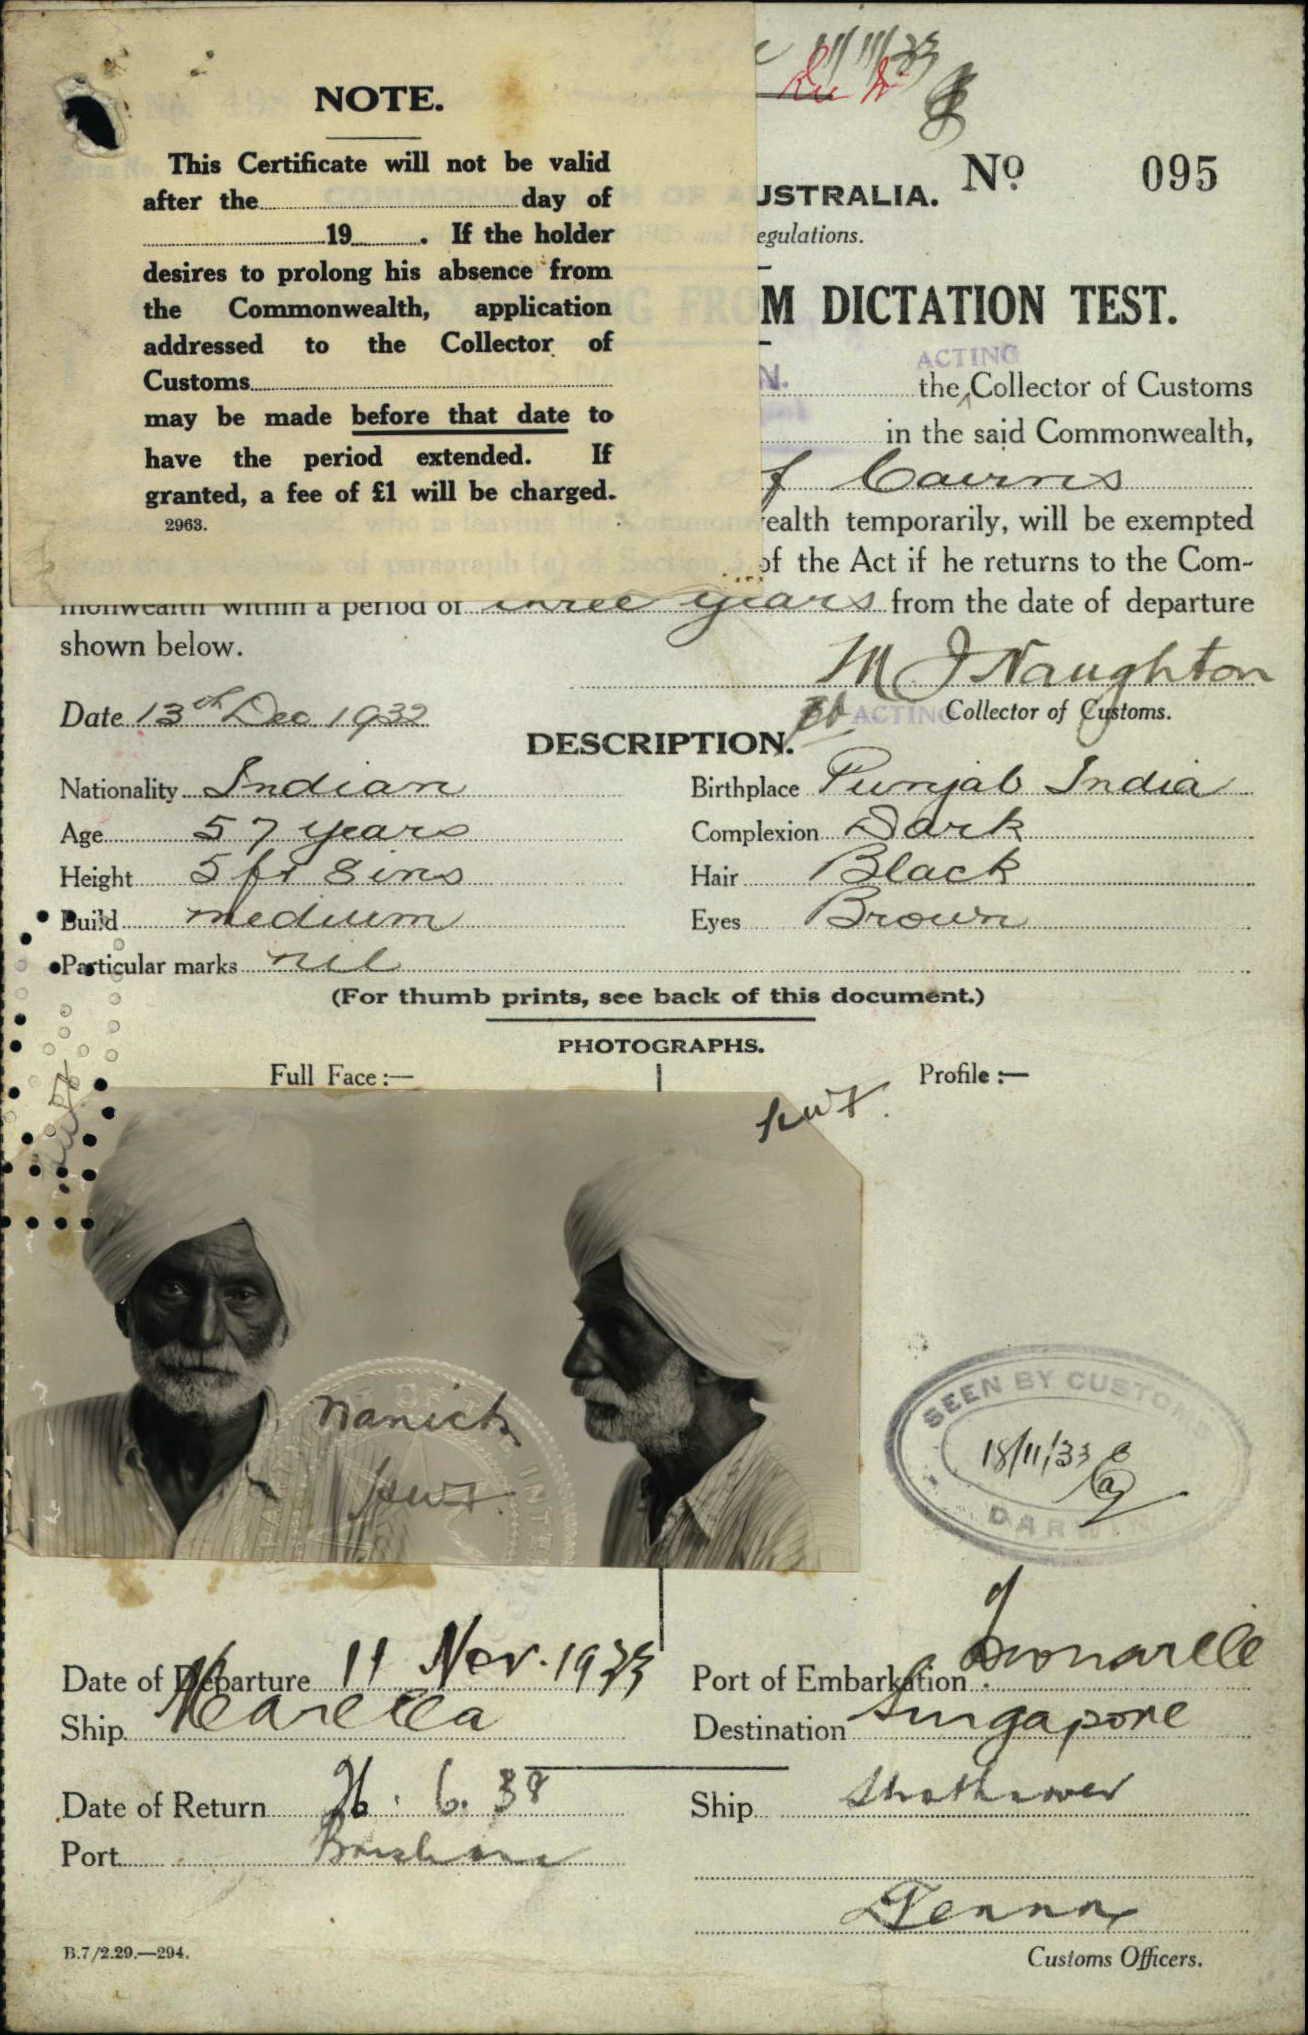 NOTE.
This Certificate will not be valid
after the day of
19 . If the holder
desires to prolong his absence from
the Commonwealth, application
addressed to the Collector of
Customs
may be made before that date to
have the period extended. If
granted, a fee of £1 will be charged.
2963.
11/11/33
USTRALIA.
No 095
egulations.
M DICTATION TEST.
N.
ACTING
the Collector of Customs
in the said Commonwealth,
f Cairns
ealth temporarily, will be exempted
of the Act if he returns to the Com-
monwealth within a period of three years from the date of departure
shown below.
M J Naughton
Date 13th Dec 1932
ACTING Collector of Customs.
DESCRIPTION.
Nationality Indian
Birthplace Punjab India
Age 57 years
Complexion Dark
Height 5 ft 8 ins
Hair Black
Build medium
Eyes Brown
Particular marks nil
(For thumb prints, see back of this document.)
PHOTOGRAPHS.
Full Face :—
Profile :—
Nanick
SEEN BY CUSTOMS
18/11/33
DARWIN
Date of Departure 11 Nov. 1933
Port of Embarkation
Ship Marella
Destination Singapore
Date of Return 26. 6. 38
Ship
Port Brisbane
Customs Officers.
B.7/2.29.—294.